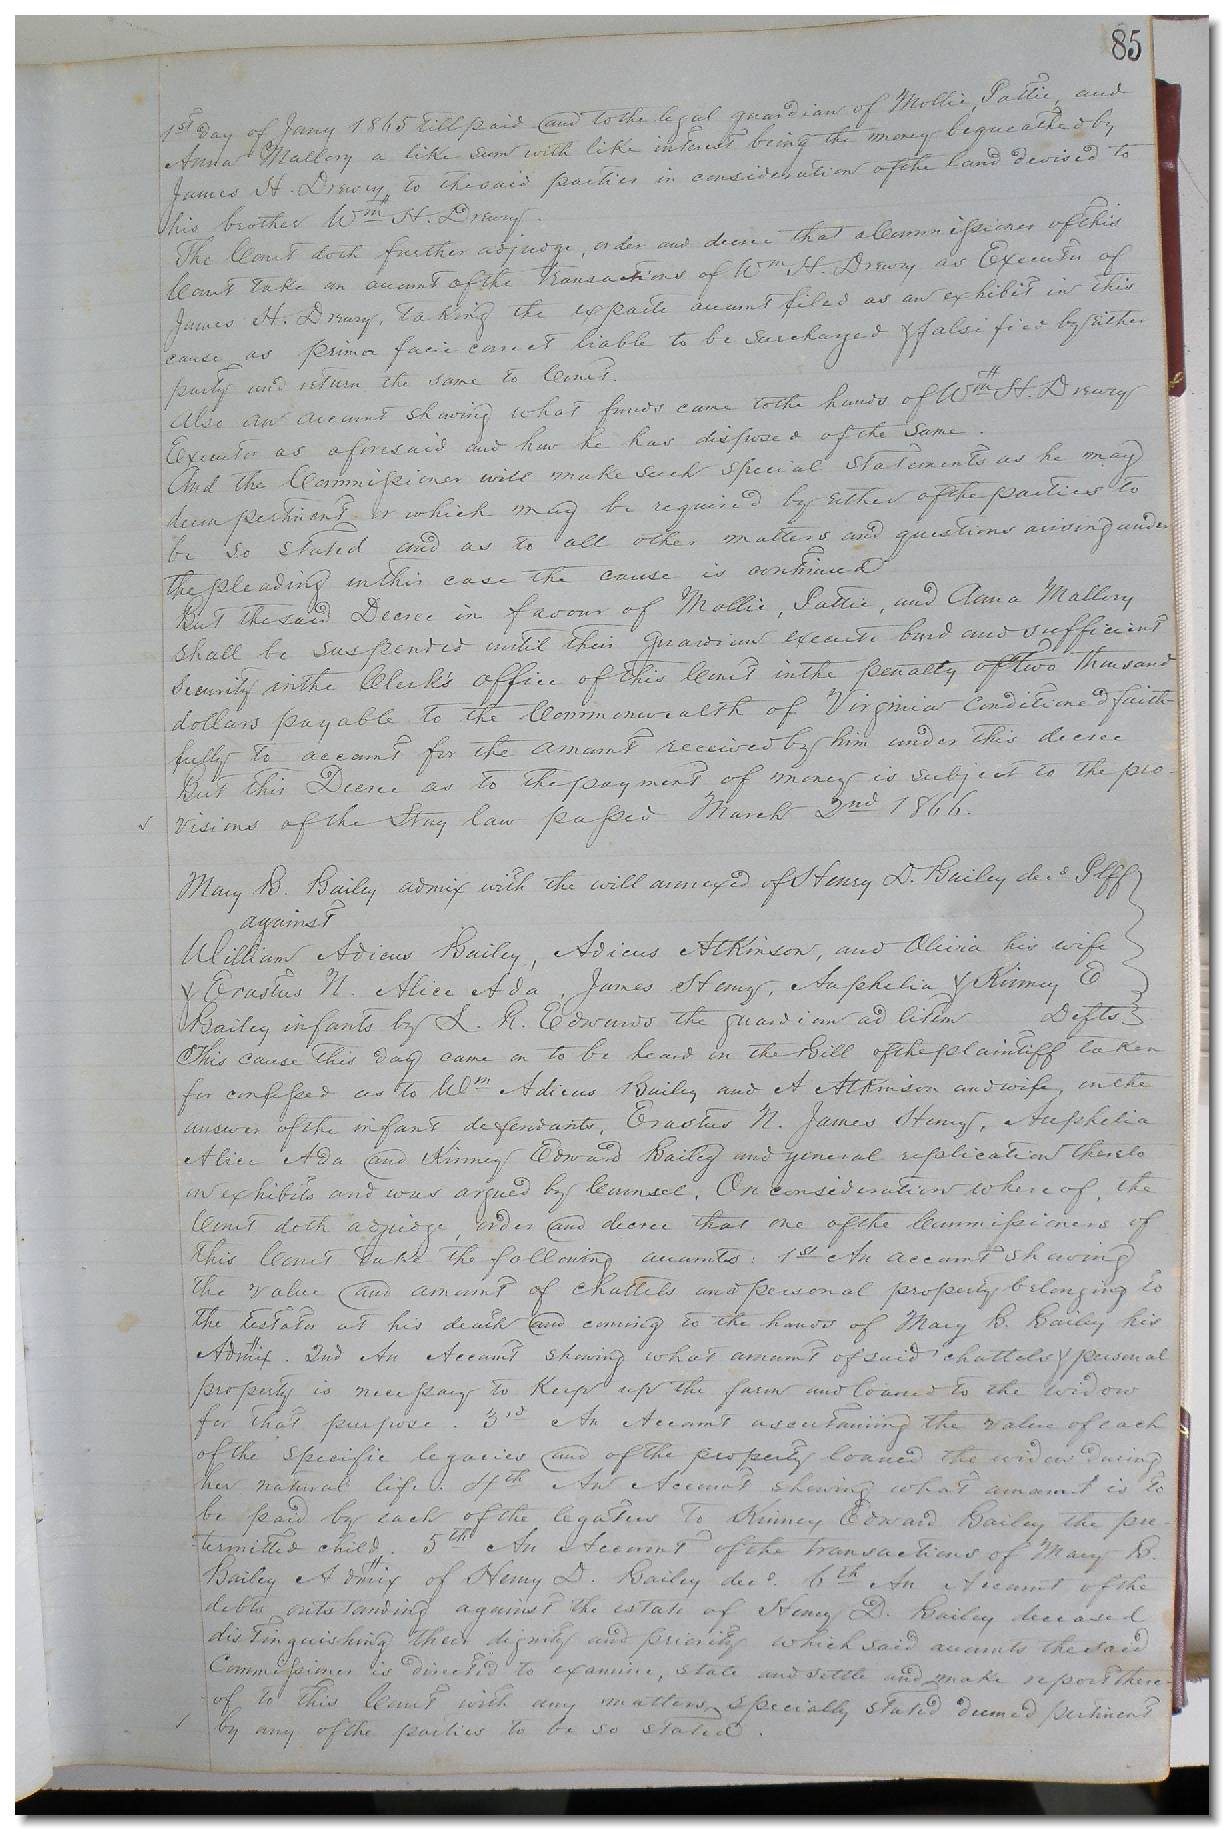 85
1st day of Jany 1865 till paid and to the legal guardian of Mollie, Pattie, and
Anna Mallory a like sum with like interest being the money bequeathed by
James H. Drewry to the said parties in consideration of the land devised to
his brother Wm H. Drewry.
The Court doth further adjudge, order and decree that a Commissioner of this
Court take an account of the transactions of Wm H. Drewry as Executor of
James H. Drewry, taking the exparte account filed as an exhibit in this
cause as prima facie correct liable to be surcharged & falsified by either
party and return the same to Court.
Also an account shewing what funds came to the hands of Wm H. Drewry
Executor as aforesaid and how he has disposed of the same.
And the Commissioner will make such special statements as he may
deem pertinent or which may be required by either of the parties to
be so stated and as to all other matters and questions arising under
the pleading in this case the cause is continued
But the said Decree in favour of Mollie, Pattie, and Anna Mallory
shall be suspended until their guardian execute bond and sufficient
security in the Clerk's office of this Court in the penalty of two thousand
dollars payable to the Commonwealth of Virginia conditioned faith-
fully to account for the amount received by him under this decree
But this Decree as to the payment of money is subject to the pro-
visions of the Stay law passed March 2nd 1866.
Mary B. Bailey admix with the will annexed of Henry D. Bailey decd Plff
against
William Adicus Bailey, Adicus Atkinson, and Olivia his wife
& Erastus N. Alice Ada, James Henry, Auphelia & Kinney E
Bailey infants by L. R. Edwards the guardian ad litem Defts
This cause this day came on to be heard on the Bill of the plaintiff taken
for confessed as to Wm Adicus Bailey and A Atkinson and wife, on the
answer of the infant defendants, Erastus N. James Henry, Auphelia
Alice Ada and Kinney Edward Bailey and general replication thereto
on exhibits and was argued by Counsel. On consideration whereof, the
Court doth adjudge, order and decree that one of the Commissioners of
this Court take the following accounts: 1st An account shewing
the value and amount of chattels and personal property belonging to
the testator at his death and coming to the hands of Mary B. Bailey his
Admix. 2nd An Account shewing what amount of said chattels & personal
property is necessary to keep up the farm and loaned to the widow
for that purpose. 3rd An Account ascertaining the value of each
of the specific legacies and of the property loaned the widow during
her natural life. 4th An Account shewing what amount is to
be paid by each of the legatees to Kinney Edward Bailey the pre-
termitted child. 5th An Account of the transactions of Mary B.
Bailey Admix of Henry D. Bailey decd. 6th An Account of the
debts outstanding against the estate of Henry D. Bailey deceased
distinguishing their dignity and priority which said accounts the said
Commissioner is directed to examine, state and settle and make report there-
of to this Court with any matters specially stated deemed pertinent
by any of the parties to be so stated.